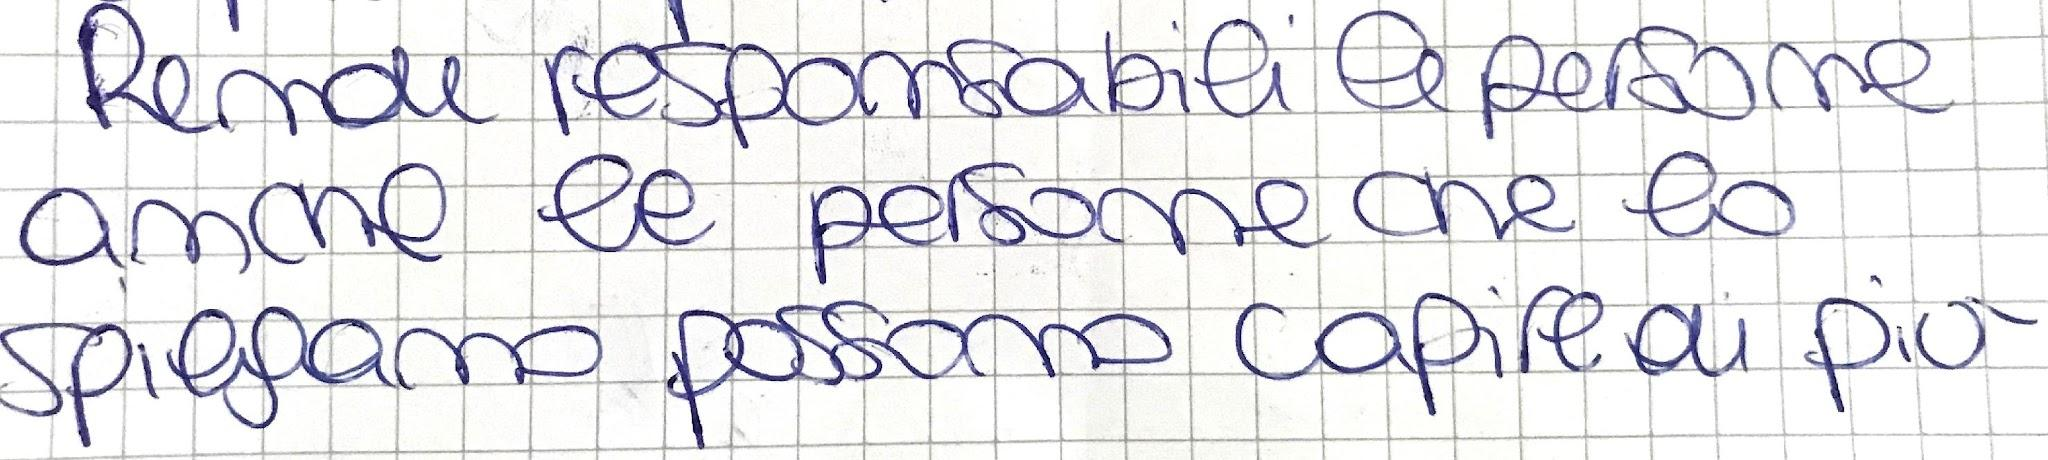 Rende responsabili le persone
anche le persone che lo
spiegano possono capire di più